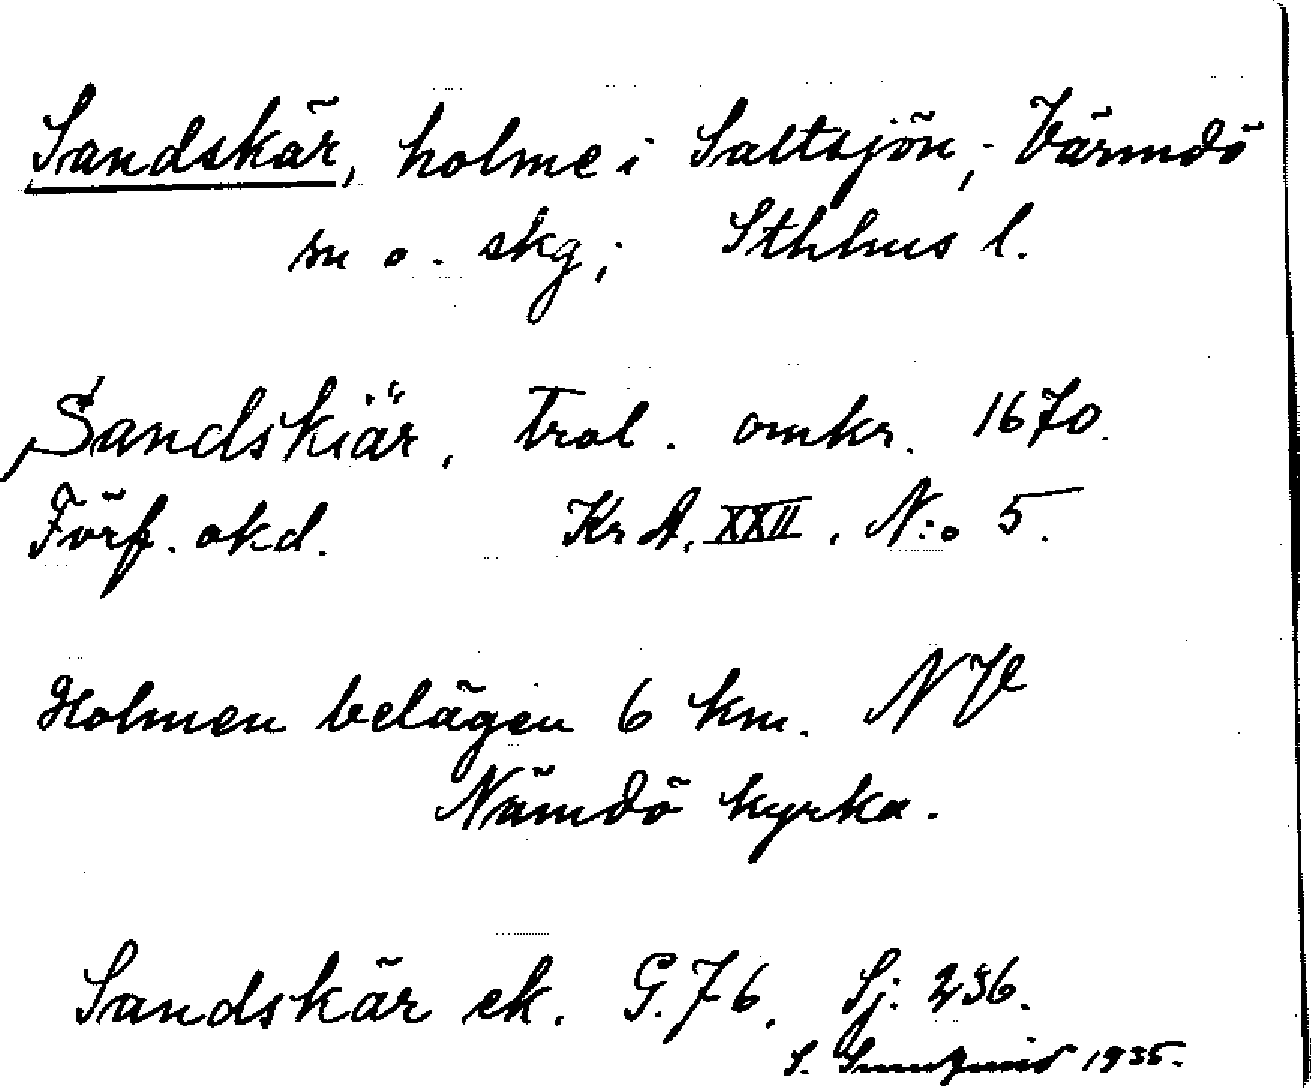 Sandskär, holme i Saltsjön, Värmdö
sn o. skg; Sthlms l.
Sandskiär, trol. omkr. 1670.
Förf. okd. KrA. XXII. N:o 5.
Holmen belägen 6 km. NV
Nämdö kyrka.
Sandskär ek. G.76. Sj. 236.
S. 1935.